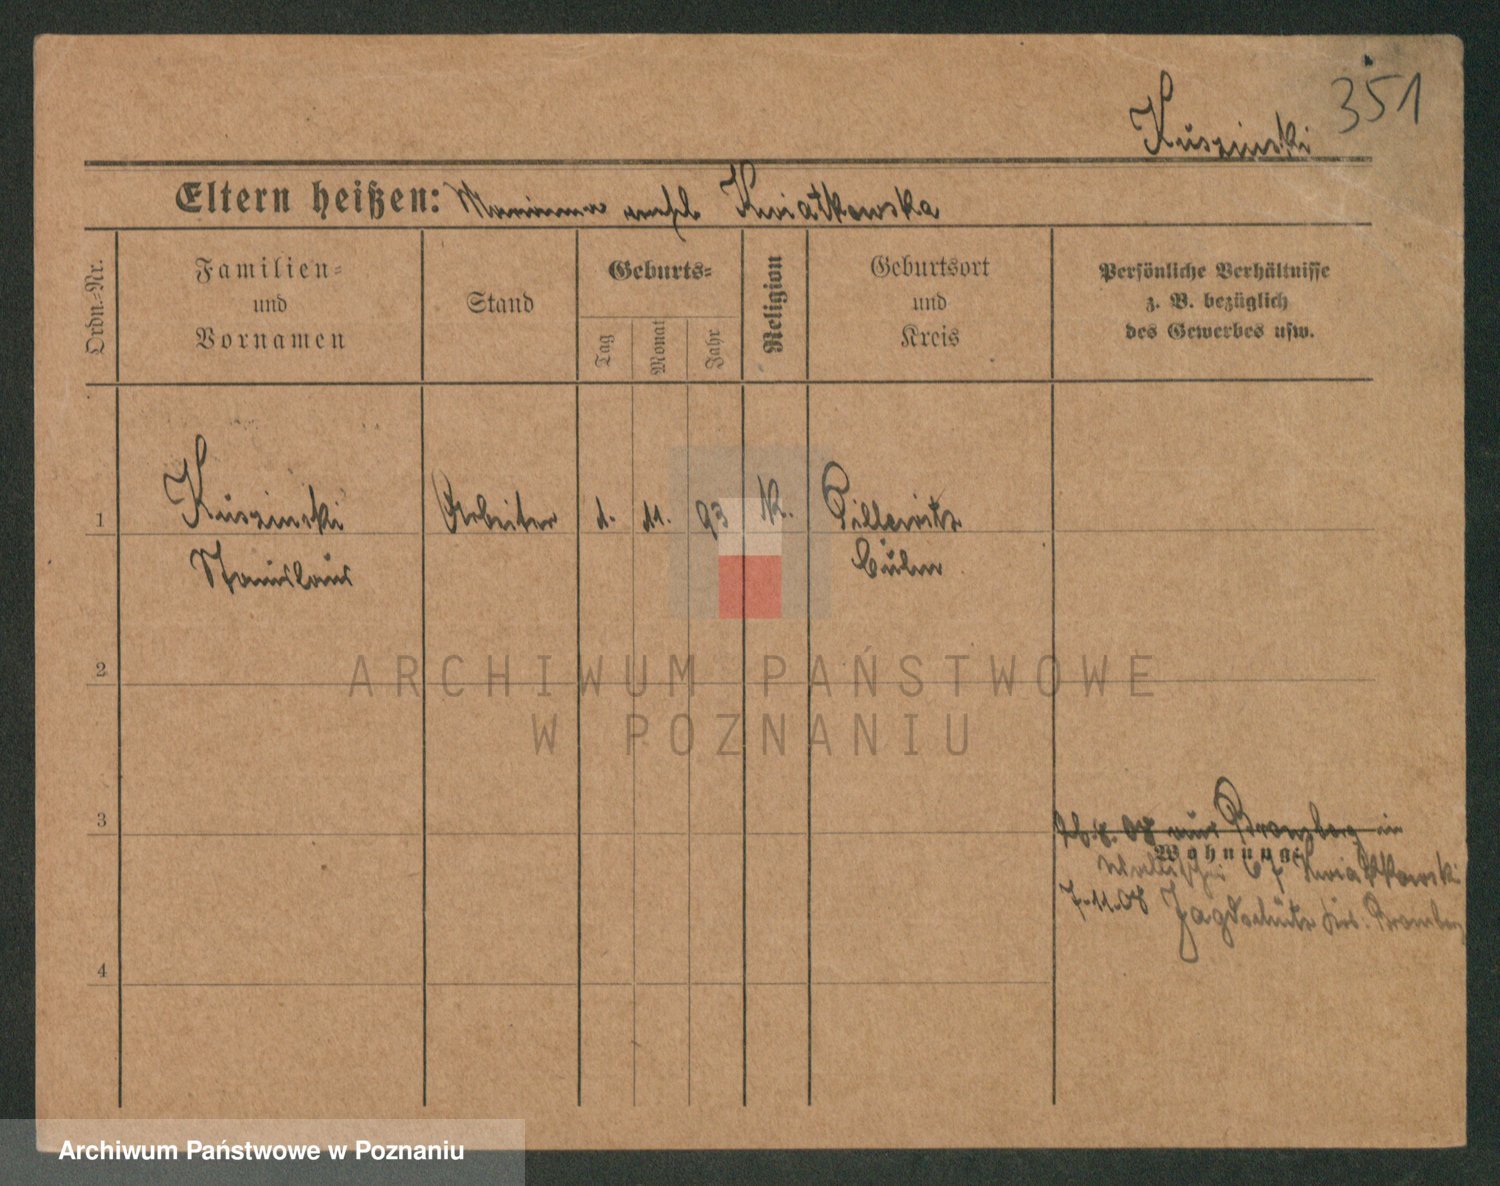 351
Kuszinski
Eltern heißen: Marianna verehl. Kwiatkowska
Ordn.-Nr.
Familien-
und
Vornamen
Stand
Geburts-
Tag
Monat
Jahr
Religion
Geburtsort
und
Kreis
Persönliche Verhältnisse
z. B. bezüglich
des Gewerbes usw.
1
Kuszinski
Stanislaus
Arbeiter
1.
11.
93
K.
Pillewitz
Culm
2
3
8. 08 aus Bromberg in
Wohnung:
67 Kwiatkowski
7.11.08 Jagdschütz Krs. Bromberg
4
ARCHIWUM PAŃSTWOWE
W POZNANIU
Archiwum Państwowe w Poznaniu